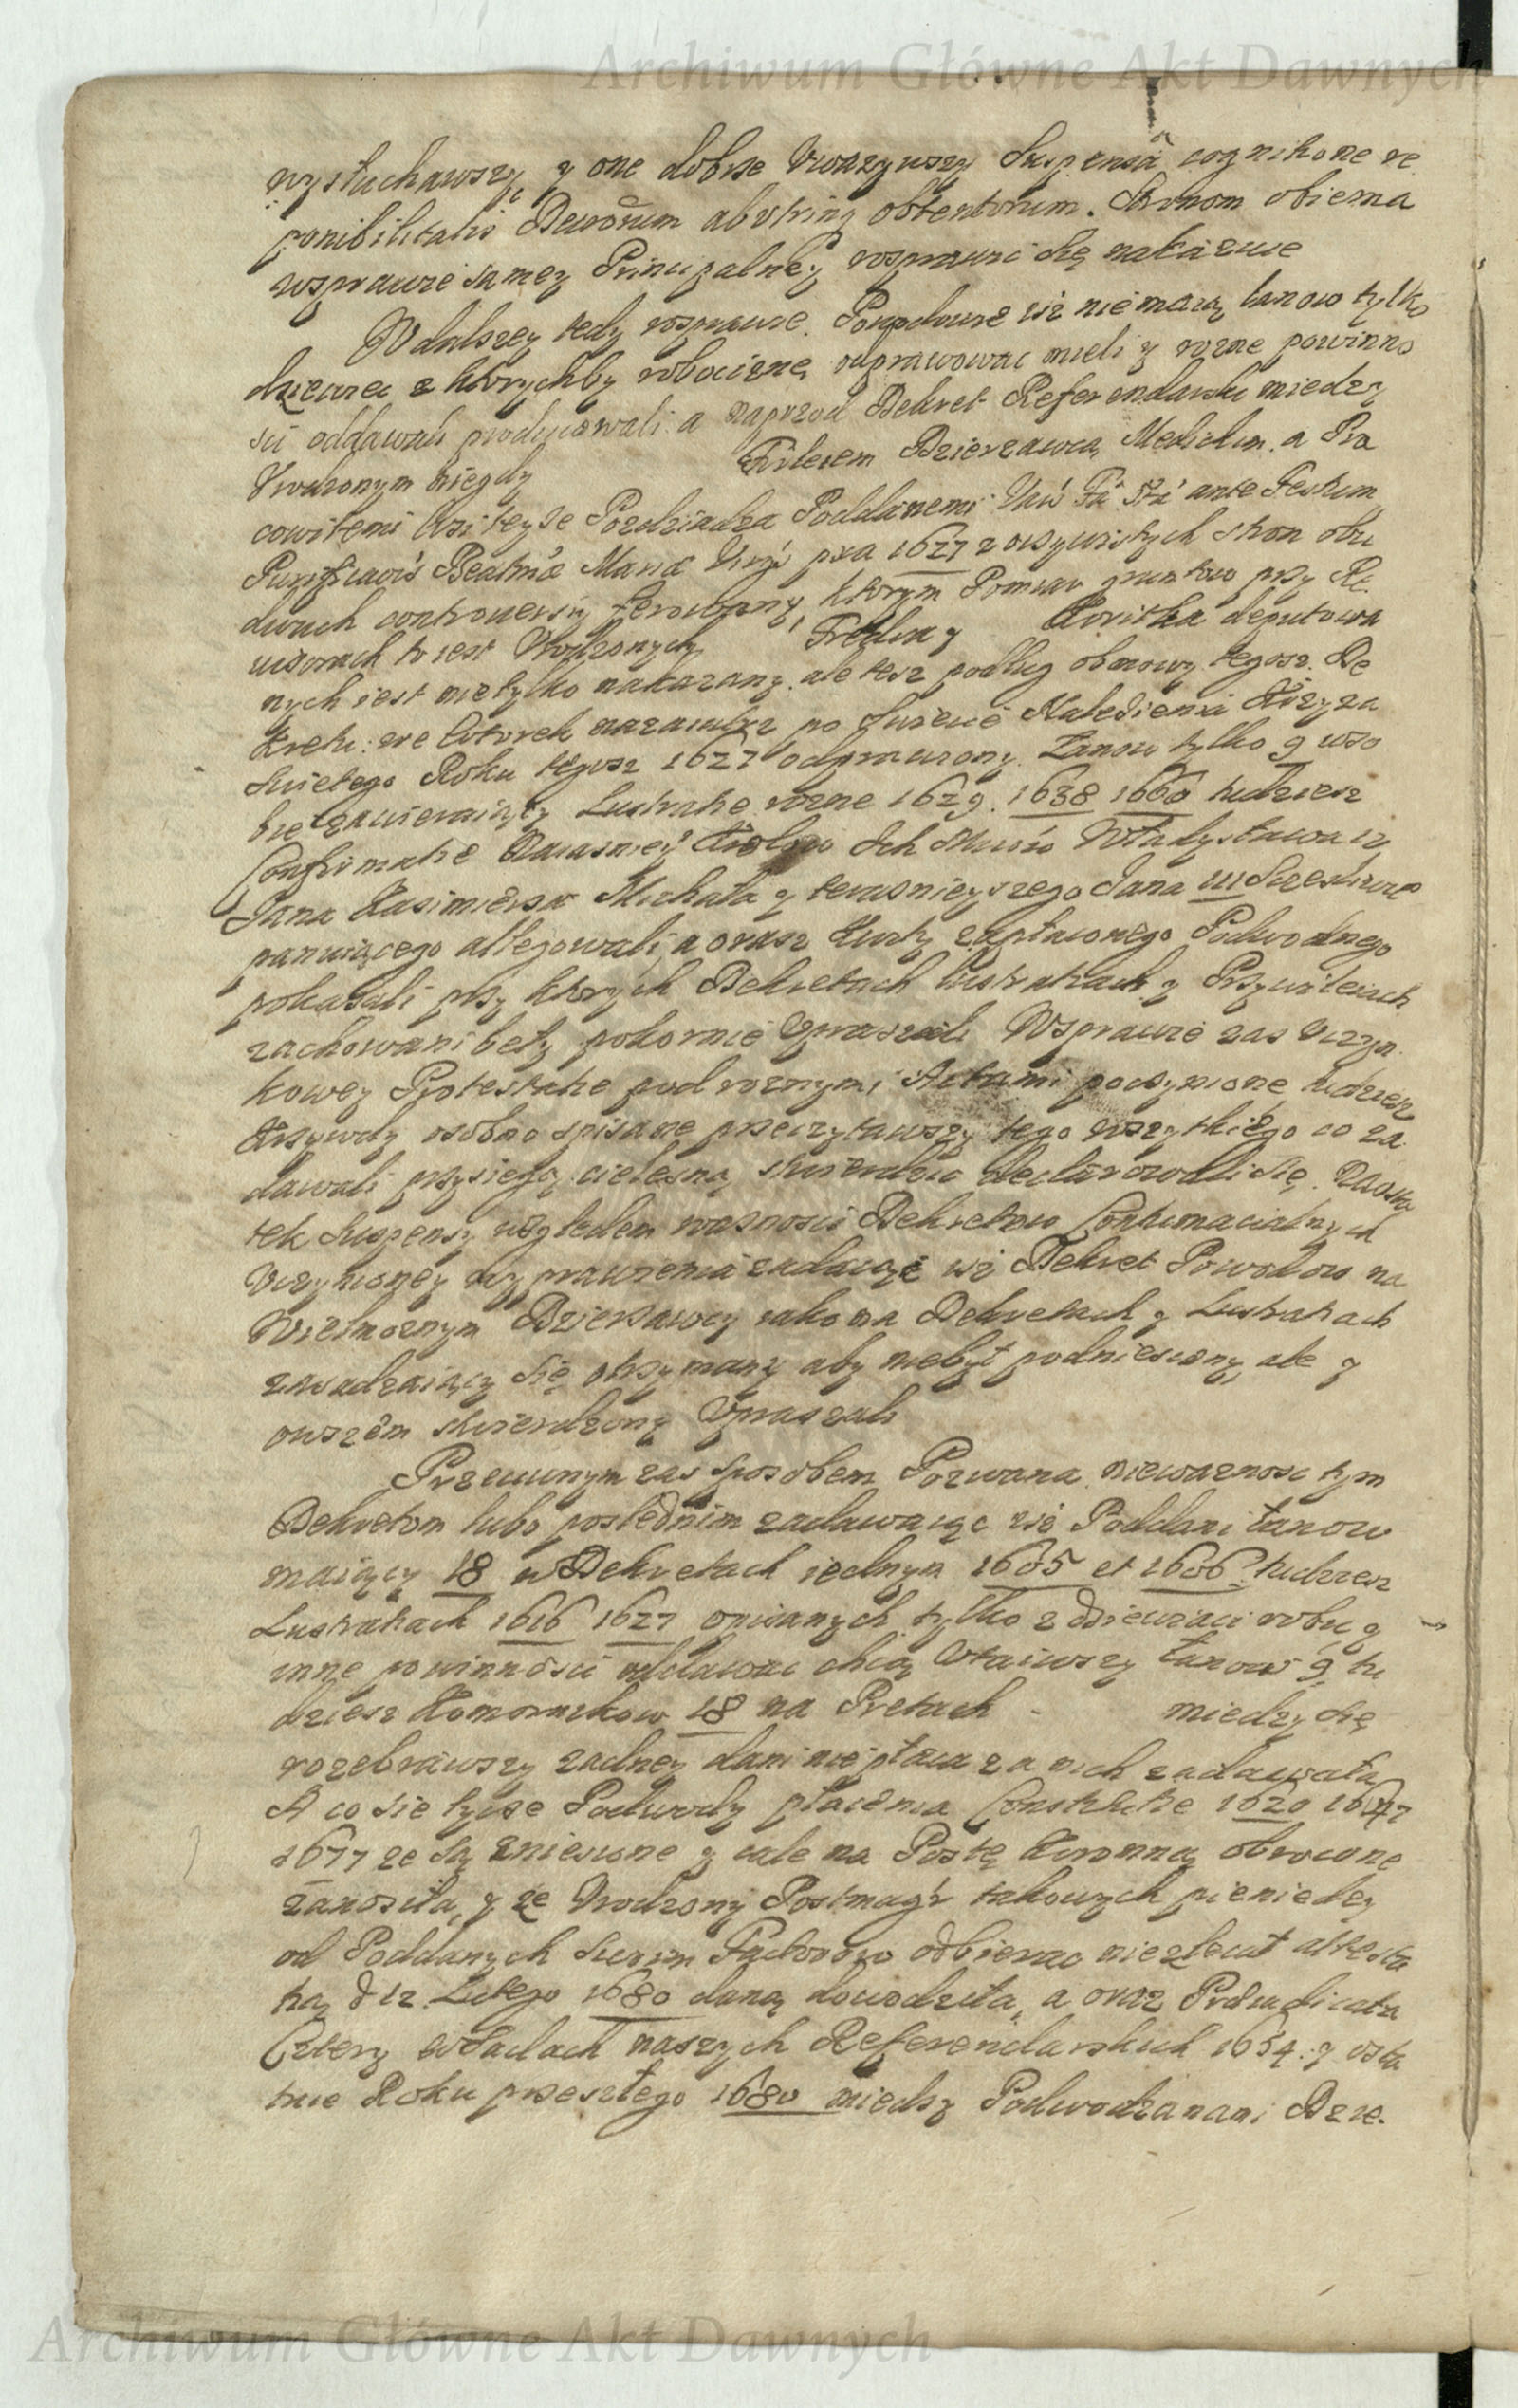 Archiwum Główne Akt Dawnych
wysłuchawszy y one dobrze Uwazywszy Suspensą cognitione re
ponibilitatis Decretorum ab utrinq obtentorum. Stronom obiema
wsprawie samey Principalney rosprawic się nakazuie
W dalszey tedy rosprawie. Powodowie isz nie maią łanow tylko
dziewiec z ktorychby robocizne odprawowac mieli y rozne powinno
sci oddawali producowali. a naprzod Dekret Referendarski miedzy
Urodzonym niegdy Dzierzawcą Medickim. a Pra
cowitemi Wsi teyze Pozdziadza Poddanemi ante Festum
Purificatiois Beatmæ Mariæ Virgis pxa 1627 z oczywistych stron obu
dwuch controwersiy ferowany, ktorym Pomiar gruntow przy Re
wisorach to iest Urodzonych Fredra y deputowa
nych iest nietylko nakazany. ale tesz podlug obmowy tegosz. De
kretu: we Wtorek nazaiutrz po Swiecie Nalezienia Krzyza
Swietego Roku tegosz 1627 odprawiony. Łanow tylko 9 wso
bie zawieraiący Lustratie rozne 1629. 1638 1660 tudziesz
Confirmatie Nawasniey Krolow Ich Mciow Władysława IV
Jana Kasimierza Michała y terasnieyszego Jana III Szczesliwie
panuiącego allegowali, a orasz Kwity zapłaconego Podwodnego
pokazali przy ktorych Dekretach lustratiach y Przywileiach
zachowani bely pokornie Upraszali Wsprawie zas Uczyn
kowey Protestatie pod roznymi Aktami poczynione tudziesz
Krzywdy osobno spisane przeczytawszy tego wszytkiego co za
dawali przysiegą cielesną stwierdzic declarowali się. Naosta
tek Suspensy wzgledem waznosci Dekretow Contumacialnych
Uczynioney wyprawienia zadaiąc isz Dekret Powodow na
Wielmoznym Dzierzawcy iako na Dekretach y Lustratiach
zasadzaiący się otrzymany aby niebył podniesiony, ale y
owszem stwierdzony Upraszali
Przeciwnym zas sposobem Pozwana niewaznosc tym
Dekretom lubo poslednim zadawaiąc isz Poddani łanow
maiący 18 w Dekretach iednym 1605 et 1606 tudziesz
Lustratiach 1616 1627 opisanych tylko z dziewiaci robic y
inne powinnosci oddawac chcą Utaiwszy łanow 9 tu
dziesz Komornikow 18 na Pretach miedzy się
rozebrawszy zadney dani nie płacą z nich zadawała
A co sie tycze Podwody płacenia Constitutie 1620 1647
1677 ze są zniesione y cale na Postę Koronną obrocone
zanosiła, y ze Urodzony Postmagr takowych pieniedzy
od Poddanych Swoim Factorom odbierac niezlecał attesta
tią d 12 Lutego 1680 daną dowodziła, a oraz Præiudicata
Cztery w Sadach naszych Referendarskich 1654. y osta
tnie Roku przeszłego 1680 miedzy Podwodzanami Dzie.
Archiwum Główne Akt Dawnych